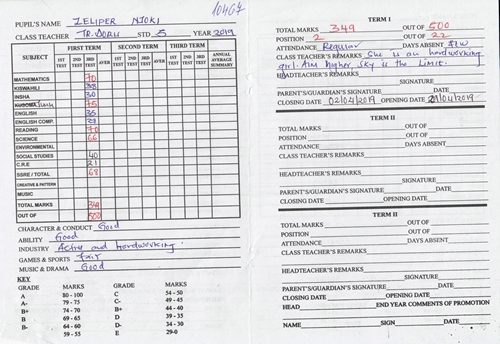 10467
PUPIL'S NAME ZELIPER NJOKI
CLASS TEACHER TR. DORIS STD 5 YEAR 2019
SUBJECT FIRST TERM SECOND TERM THIRD TERM ANNUAL AVERAGE SUMMARY
1ST TEST 2ND TEST 3RD TEST AVER 1ST TEST 2ND TEST 3RD TEST AVER 1ST TEST 2ND TEST 3RD TEST
MATHEMATICS 70
KISWAHILI 38
INSHA 30
75
ENGLISH 35
ENGLISH COMP.
READING 70
SCIENCE 66
ENVIRONMENTAL
SOCIAL STUDIES 40
C.R.E 21
SSRE / TOTAL 68
CREATIVE & PATTERN
MUSIC
TOTAL MARKS 349
OUT OF 500
CHARACTER & CONDUCT Good
ABILITY Good
INDUSTRY Active and hardworking.
GAMES & SPORTS Fair
MUSIC & DRAMA Good
KEY
GRADE MARKS GRADE MARKS
A 80 - 100 C 54 - 50
A- 79 - 75 C- 49 - 45
B+ 74 - 70 D+ 44 - 40
B 69 - 65 D 39 - 35
B- 64 - 60 D- 34 - 30
59 - 55 E 29-0
TERM I
TOTAL MARKS 349 OUT OF 500
POSITION 2 OUT OF 22
ATTENDANCE Regular DAYS ABSENT few
CLASS TEACHER'S REMARKS She is an hardworking
girl. Aim higher, sky is the limit.
HEADTEACHER'S REMARKS
SIGNATURE
PARENT'S/GUARDIAN'S SIGNATURE DATE
CLOSING DATE 02/04/2019 OPENING DATE 29/04/2019
TERM II
TOTAL MARKS OUT OF
POSITION OUT OF
ATTENDANCE DAYS ABSENT
CLASS TEACHER'S REMARKS
HEADTEACHER'S REMARKS
SIGNATURE
PARENT'S/GUARDIAN'S SIGNATURE DATE
CLOSING DATE OPENING DATE
TERM II
TOTAL MARKS OUT OF
POSITION OUT OF
ATTENDANCE DAYS ABSENT
CLASS TEACHER'S REMARKS
HEADTEACHER'S REMARKS
SIGNATURE
PARENT'S/GUARDIAN'S SIGNATURE DATE
CLOSING DATE OPENING DATE
HEAD END YEAR COMMENTS OF PROMOTION
NAME SIGN DATE